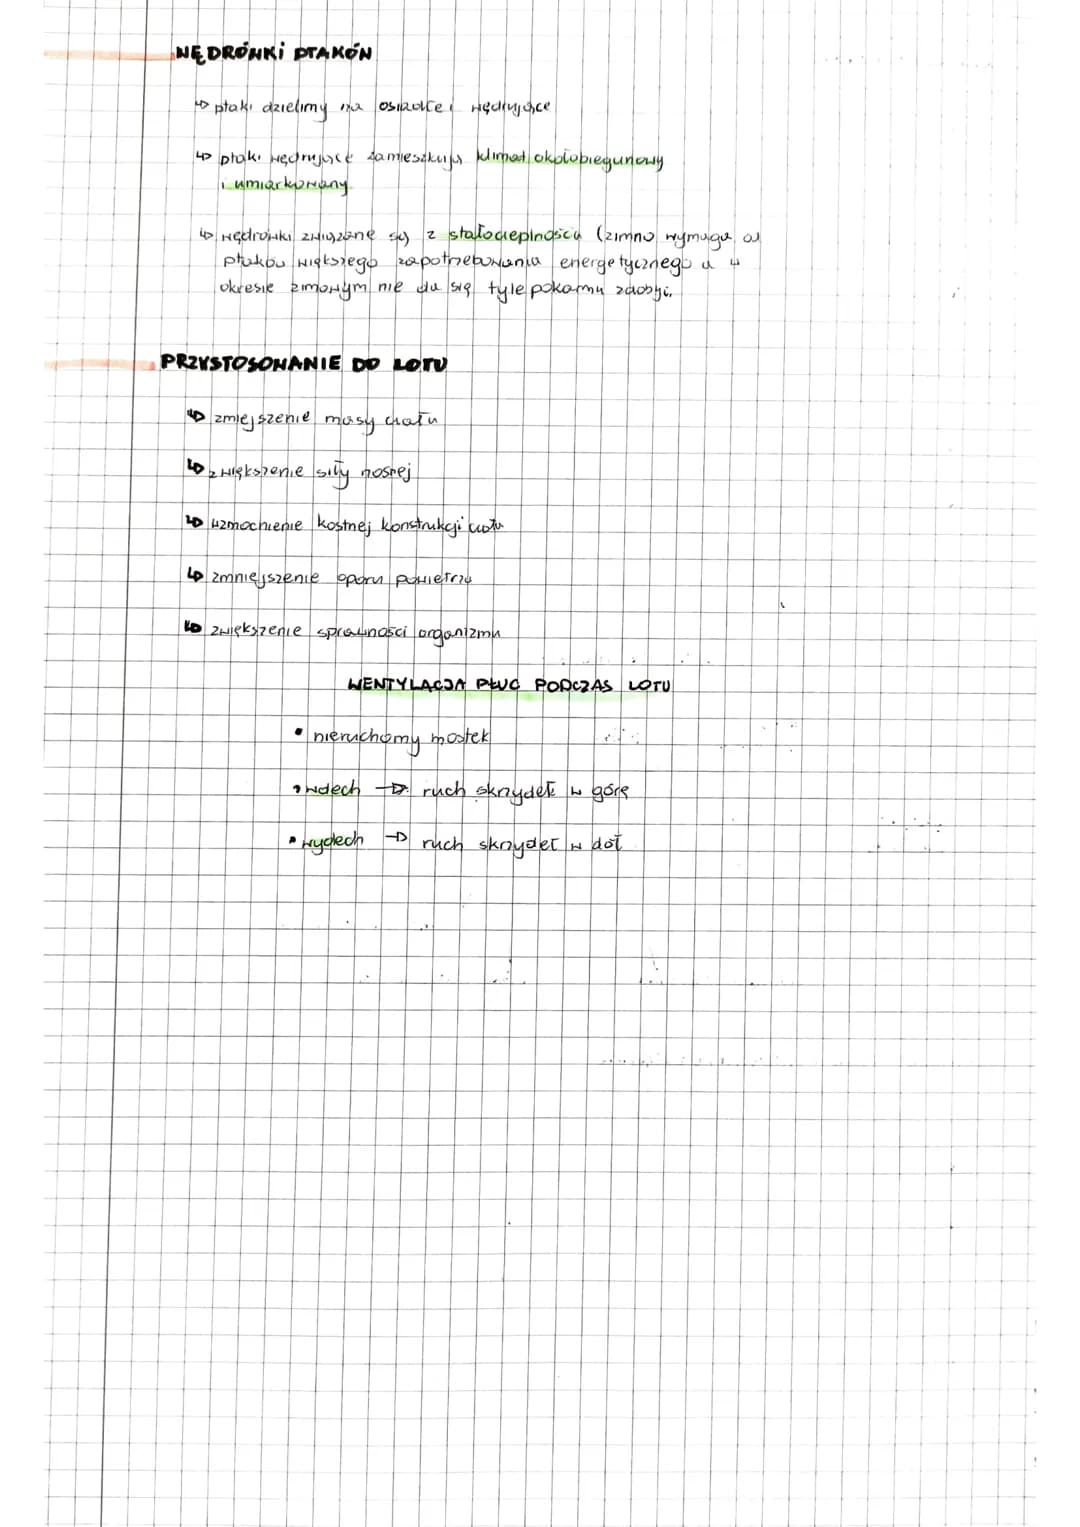 WĘDRÓWKI PTAKÓW
↳ ptaki dzielimy na osiadłe i wędrujące
↳ ptaki wędrujące zamieszkują klimat okołobiegunowy
i umiarkowany
↳ wędrówki związane są z stałocieplnością (zimno wymaga od
ptaków większego zapotrzebowania energetycznego a w
okresie zimowym nie da się tyle pokarmu zdobyć.
PRZYSTOSOWANIE DO LOTU
↳ zmiejszenie masy ciała
↳ zwiększenie siły nośnej
↳ wzmocnienie kostnej konstrukcji ciała
↳ zmniejszenie oporu powietrza
↳ zwiększenie sprawności organizmu
WENTYLACJA PŁUC PODCZAS LOTU
• nieruchomy mostek
• wdech → ruch skrzydeł w górę
• wydech → ruch skrzydeł w dół